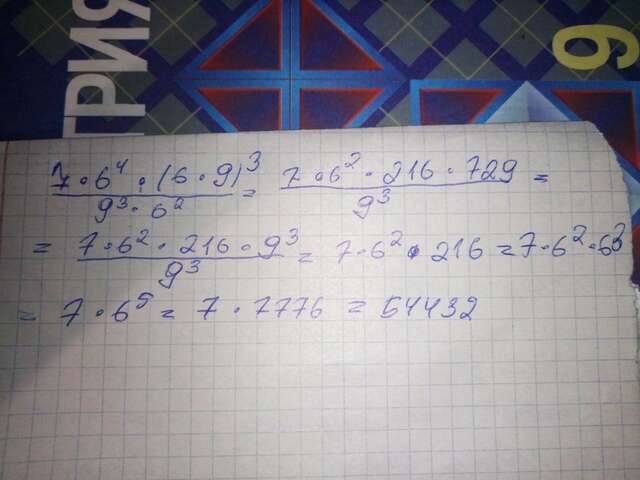 ТРИЯ
9
7 · 6⁴ · (6 · 9)³ / 9³ · 6² = 7 · 6² · 216 · 729 / 9³ =
= 7 · 6² · 216 · 9³ / 9³ = 7 · 6² · 216 = 7 · 6² · 6³
= 7 · 6⁵ = 7 · 7776 = 54432